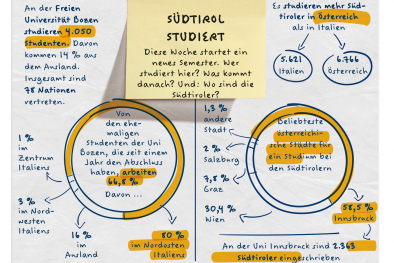 An der Freien
Universität Bozen
studieren 4.050
Studenten. Davon
kommen 14 % aus
dem Ausland.
Insgesamt sind
78 Nationen
vertreten.
SÜDTIROL
STUDIERT
Diese Woche startet ein
neues Semester. Wer
studiert hier? Was kommt
danach? Und: Wo sind die
Südtiroler?
Es studieren mehr Süd-
tiroler in Österreich
als in Italien
5.621
Italien
6.766
Österreich
Von
den ehe-
maligen
Studenten der Uni
Bozen, die seit einem
Jahr den Abschluss
haben, arbeiten
66,8 %
Davon ...
1 %
im
Zentrum
Italiens
3 %
im Nord-
westen
Italiens
16 %
im
Ausland
80 %
im Nordosten
Italiens
Beliebteste
österreichi-
sche Städte für
ein Studium bei
den Südtirolern
1,3 %
andere
Stadt
2 %
Salzburg
7,8 %
Graz
30,4 %
Wien
58,5 %
Innsbruck
An der Uni Innsbruck sind 2.363
Südtiroler eingeschrieben